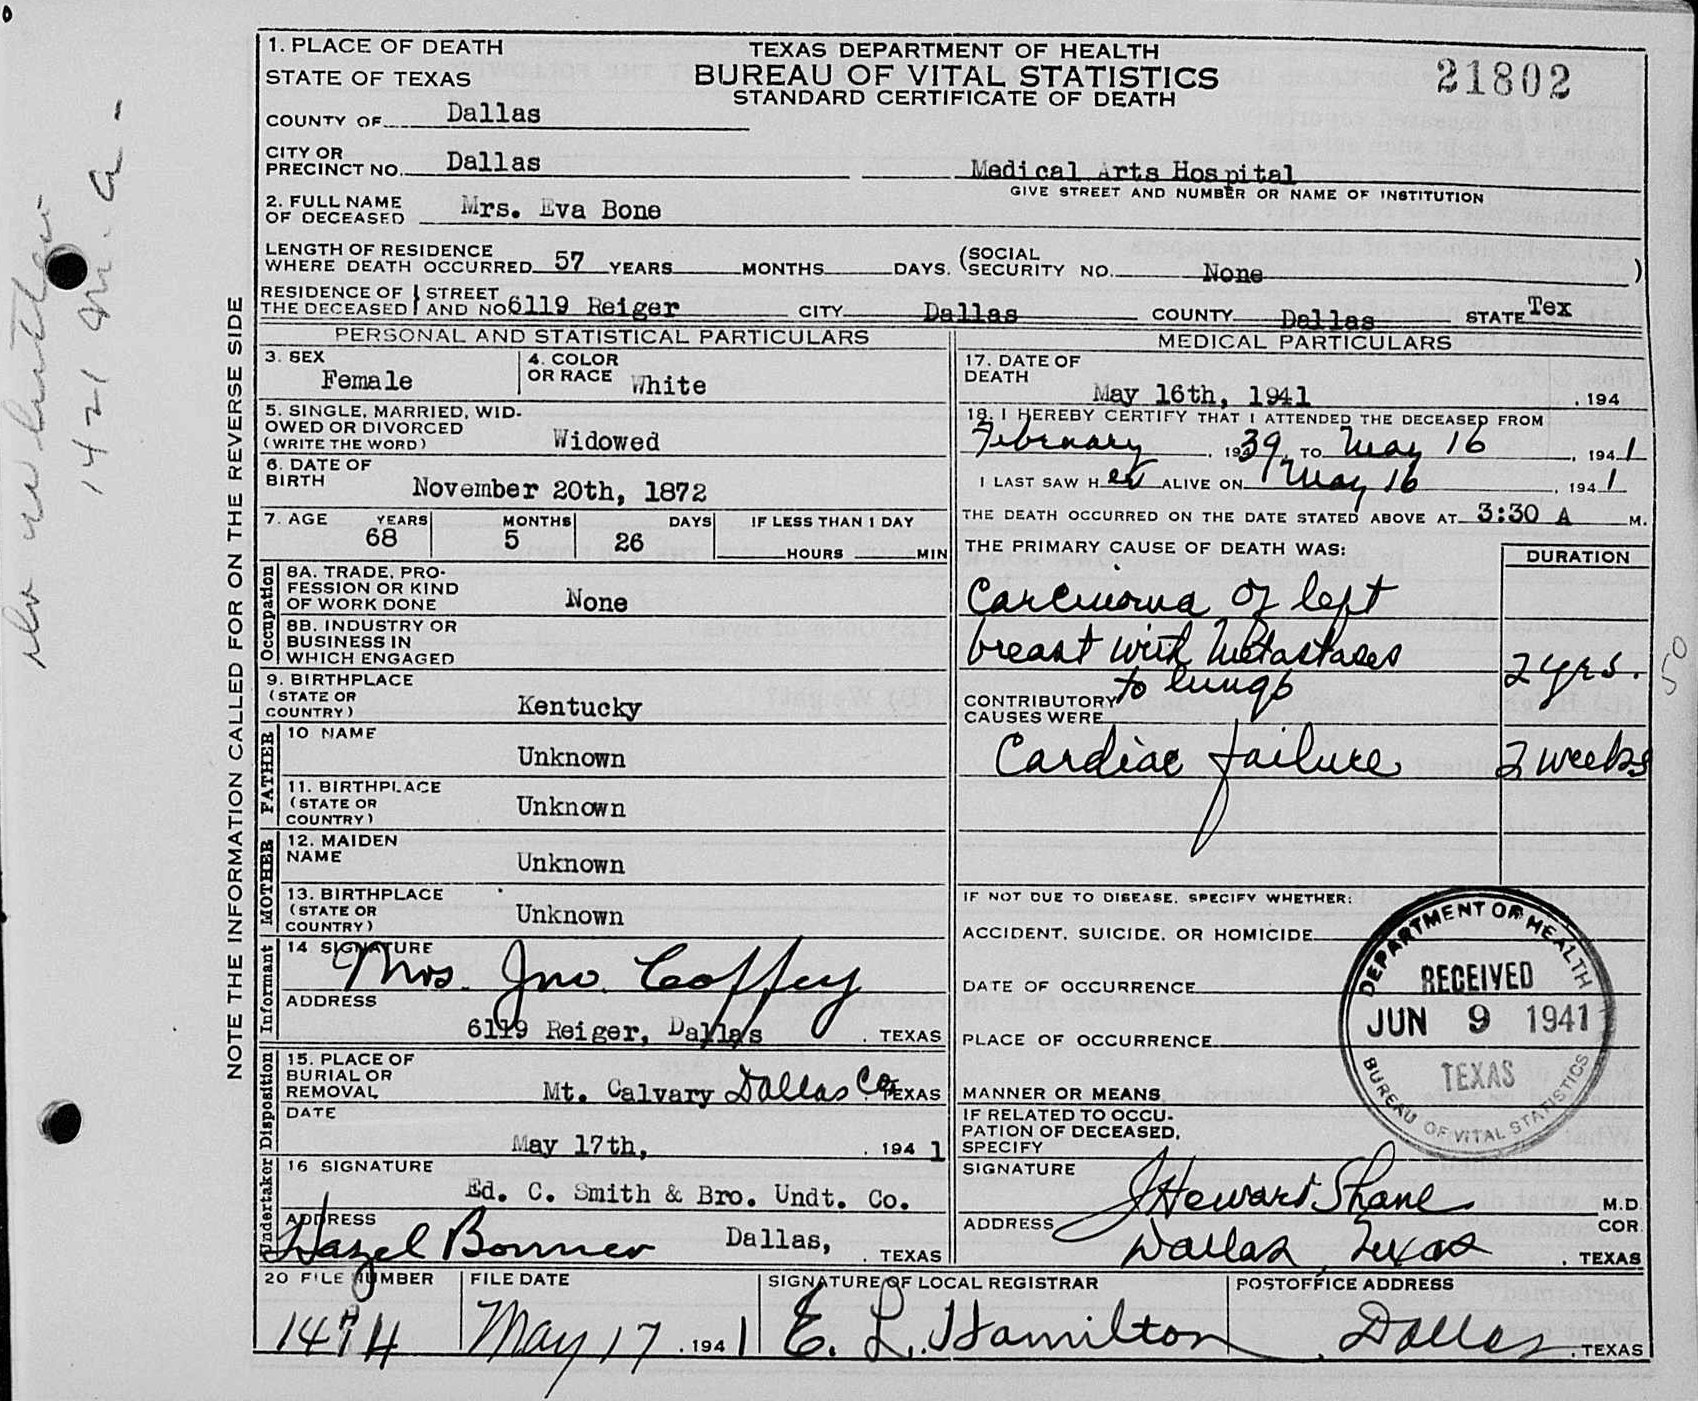 1. PLACE OF DEATH
STATE OF TEXAS
TEXAS DEPARTMENT OF HEALTH
BUREAU OF VITAL STATISTICS
STANDARD CERTIFICATE OF DEATH
21802
COUNTY OF Dallas
CITY OR
PRECINCT NO. Dallas Medical Arts Hospital
GIVE STREET AND NUMBER OR NAME OF INSTITUTION
2. FULL NAME
OF DECEASED Mrs. Eva Bone
LENGTH OF RESIDENCE
WHERE DEATH OCCURRED 57 YEARS MONTHS DAYS. (SOCIAL
SECURITY NO. None )
RESIDENCE OF } STREET
THE DECEASED } AND NO 6119 Reiger CITY Dallas COUNTY Dallas STATE Tex
NOTE THE INFORMATION CALLED FOR ON THE REVERSE SIDE
PERSONAL AND STATISTICAL PARTICULARS
3. SEX
Female
4. COLOR
OR RACE White
5. SINGLE, MARRIED, WID-
OWED OR DIVORCED
(WRITE THE WORD) Widowed
6. DATE OF
BIRTH November 20th, 1872
7. AGE YEARS MONTHS DAYS IF LESS THAN 1 DAY
68 5 26 HOURS MIN
Occupation
8A. TRADE, PRO-
FESSION OR KIND
OF WORK DONE None
8B. INDUSTRY OR
BUSINESS IN
WHICH ENGAGED
9. BIRTHPLACE
(STATE OR
COUNTRY) Kentucky
FATHER
10 NAME
Unknown
11. BIRTHPLACE
(STATE OR
COUNTRY) Unknown
MOTHER
12. MAIDEN
NAME Unknown
13. BIRTHPLACE
(STATE OR
COUNTRY) Unknown
Informant
14 SIGNATURE
Mrs. Jno. Coffey
ADDRESS
6119 Reiger, Dallas . TEXAS
Disposition
15. PLACE OF
BURIAL OR
REMOVAL Mt. Calvary Dallas Co. TEXAS
DATE
May 17th, . 194 1
Undertaker
16 SIGNATURE
Ed. C. Smith & Bro. Undt. Co.
ADDRESS
Hazel Bonner Dallas, . TEXAS
MEDICAL PARTICULARS
17. DATE OF
DEATH
May 16th, 1941 . 194
18. I HEREBY CERTIFY THAT I ATTENDED THE DECEASED FROM
February . 1939, TO May 16 , 1941
I LAST SAW H er ALIVE ON May 16 , 1941
THE DEATH OCCURRED ON THE DATE STATED ABOVE AT 3:30 A M.
THE PRIMARY CAUSE OF DEATH WAS: DURATION
Carcinoma of left
breast with Metastases 2 yrs.
to lungs
CONTRIBUTORY
CAUSES WERE
Cardiac failure 2 weeks
IF NOT DUE TO DISEASE, SPECIFY WHETHER:
ACCIDENT, SUICIDE, OR HOMICIDE
DATE OF OCCURRENCE
PLACE OF OCCURRENCE
MANNER OR MEANS
IF RELATED TO OCCU-
PATION OF DECEASED,
SPECIFY
DEPARTMENT OF HEALTH
RECEIVED
JUN 9 1941
TEXAS
BUREAU OF VITAL STATISTICS
SIGNATURE J Howard Shane M.D.
COR.
ADDRESS Dallas, Texas . TEXAS
20 FILE NUMBER FILE DATE SIGNATURE OF LOCAL REGISTRAR POSTOFFICE ADDRESS
May 17 . 1941 E. L. Hamilton Dallas . TEXAS
50